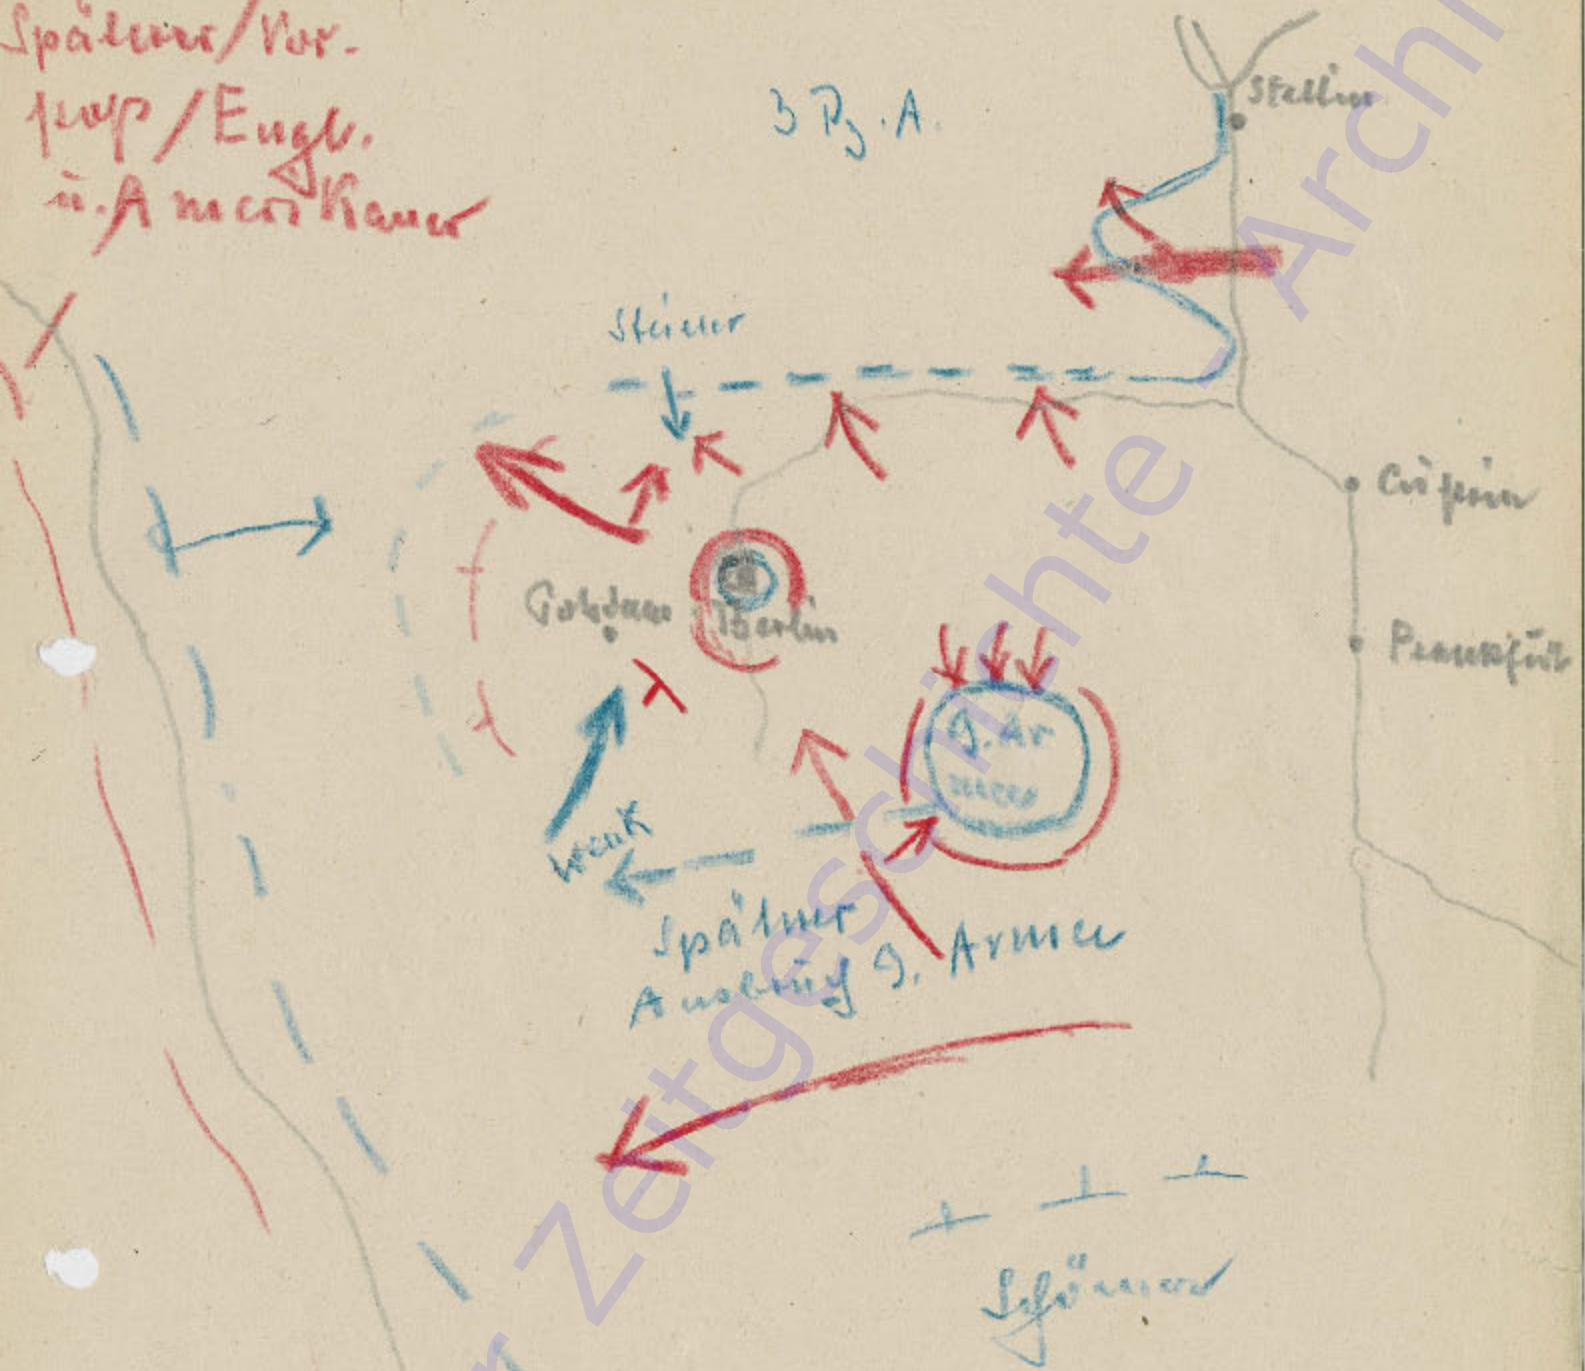 Späterer/Vor-
stoß/Engl.
u. Amerikaner
3 Pz. A.
Stettin
Steiner
Cüstrin
Potsdam
Berlin
Frankfurt
9. Ar
mee
Wenk
Späterer
Ausbruch 9. Armee
Schörner
Archi
Zeitgeschichte